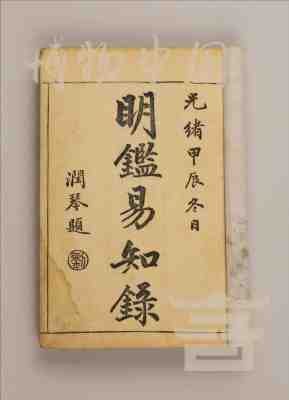 博物中国
光緒甲辰冬日
明鑑易知錄
潤琴題